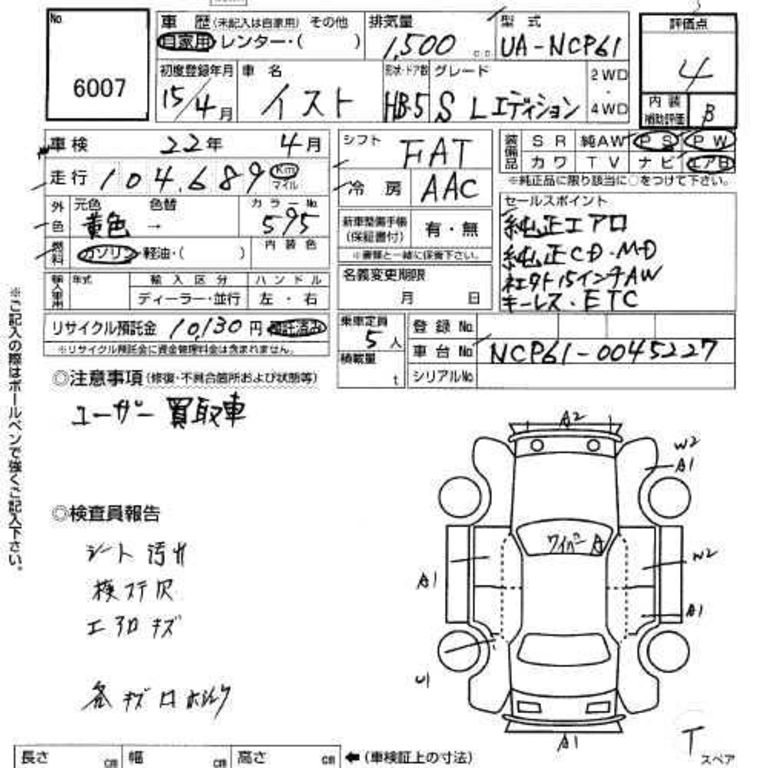 No.
6007
車歴 (未記入は自家用) その他
自家用 レンター・( )
排気量
1,500 c.c.
型式
UA-NCP61
評価点
4
内装補助評価 B
初度登録年月
15/4月
車名
イスト
形状・ドア数
HB-5
グレード
S Lエディション
2WD・4WD
車検 22年 4月
走行 104,689 Km マイル
外色
元色 色替
黄色 →
カラーNo.
595
燃料
ガソリン・軽油・( )
内装色
輸入車用
年式
輸入区分
ディーラー・並行
ハンドル
左・右
リサイクル預託金 10,130円 預託済み
※リサイクル預託金に資金管理料金は含まれません。
シフト FAT
冷房 AAC
新車整備手帳(保証書付) 有・無
※書類と一緒に保管下さい。
名義変更期限
月 日
乗車定員 5人
積載量 t
装備品
SR 純AW PS PW
カワ TV ナビ エアB
※純正品に限り該当に○をつけて下さい。
セールスポイント
純正エアロ
純正CD・MD
社外15インチAW
キーレス・ETC
登録No.
車台No. NCP61-0045227
シリアルNo.
※ご記入の際はボールペンで強くご記入下さい。
◎注意事項(修復・不具合箇所および状態等)
ユーザー買取車
◎検査員報告
シート汚れ
エアロキズ
A2
W2
A1
ワイパーA
W2
A1
A1
U1
A1
T
スペア
長さ cm 幅 cm 高さ cm ←(車検証上の寸法)